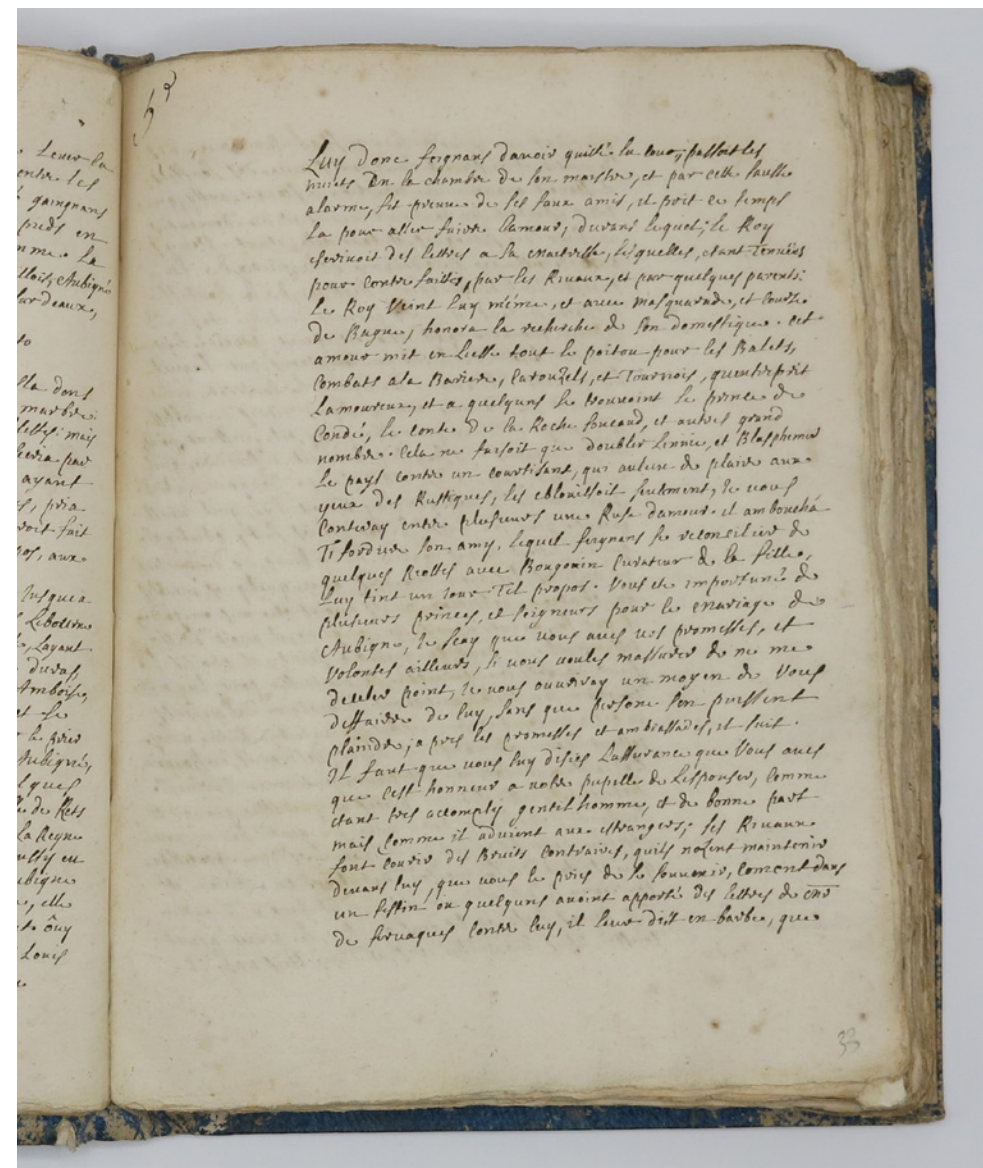 Leur la
entre les
gaingnans
pieds en
La
Aubigné
sur deaux,
la dons
marbre
mais
par
ayant
pria
fait
aux
Jusques a
Layant
duras,
Amboise,
et se
Aubigné,
de Rets
La Reyne
en
elle
ouy
Louis
Luy donc feignans davoir quitté la cour, passoit les
nuicts En la chambre de son maistre, et par cette faulse
alarme, fit preuve de ses faux amis, il prit ce temps
La pour aller suivre Lamour, durans lequel, le Roy
escrivoit des lettres a sa maitresse, lesquelles, etant Tenuës
pour contrefaittes, par les Rivaux, et par quelques parents:
Le Roy Vint luy méme, et avec masquarade, et Course
de Bague, honora la recherche de son domestique. Cet
amour mit en Liesse tout le poitou pour les Balets,
Combats a la Bariere, Carouzels, et Tournois, quentreprit
Lamoureux, et a quelquns se trouvoint le prince de
Condé, le conte De la Roche foucaud, et autres grand
nombre. Cela ne faisoit que doubler Lenvie, et Blasphemer
Le pays contre un courtisant, qui au lieu de plaire aux
yeux des Rustiques, les eblouissoit seulment, Je vous
Conteray entre plusieurs une Ruse damour. il ambouchá
Tifordure son amy, Lequel feignans se reconcilier de
quelques Riottes avec Bougouin Curateur de la fille,
Luy tint un Jour Tel propos. Vous ete importuné de
plusieurs princes, et seigneurs pour le mariage de
Aubigné, Je scay que vous aves vos promesses, et
Volontes ailleurs, si vous voules massurer de ne me
deceler point, Je vous ouvriray un moyen de Vous
deffaire de luy, sans que persone sen puissent
plaindre, apres les promesses et ambrassades, il suit.
Il faut que vous luy disies Lassurance que Vous aves
que cest honneur a votre pupille de Lespouser, Comme
etant tres accomply gentilhomme, et de bonne part
mais comme il advient aux estrangers; ses Rivaux
font courir des Bruits Contraires, quils nozent maintenir
devans luy, que vous le pries de se souvenir, Coment dans
un festin ou quelquns avoint apporté des lettres de
de fervaques Contre luy, il leur dit en barbe, que
33